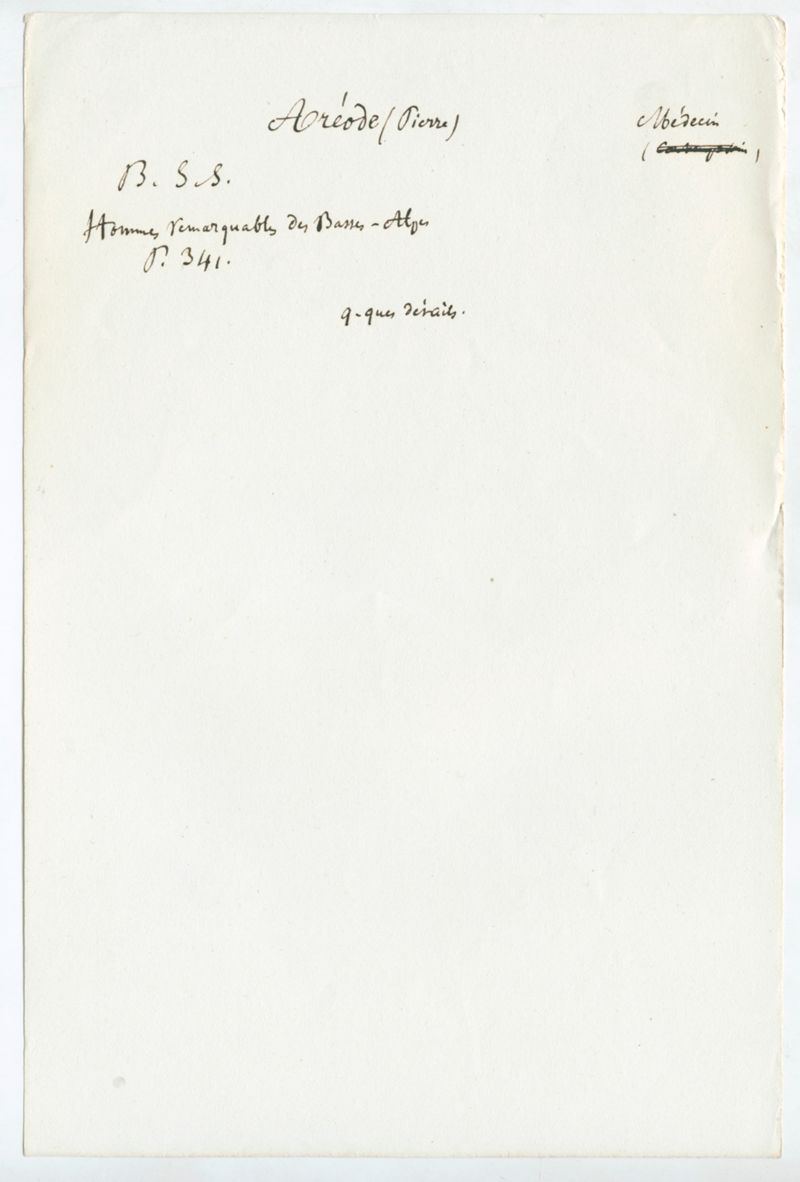 Aréode (Pierre)
Médecin
B. S. S.
Hommes remarquables des Basses-Alpes
P. 341.
q-ques détails.